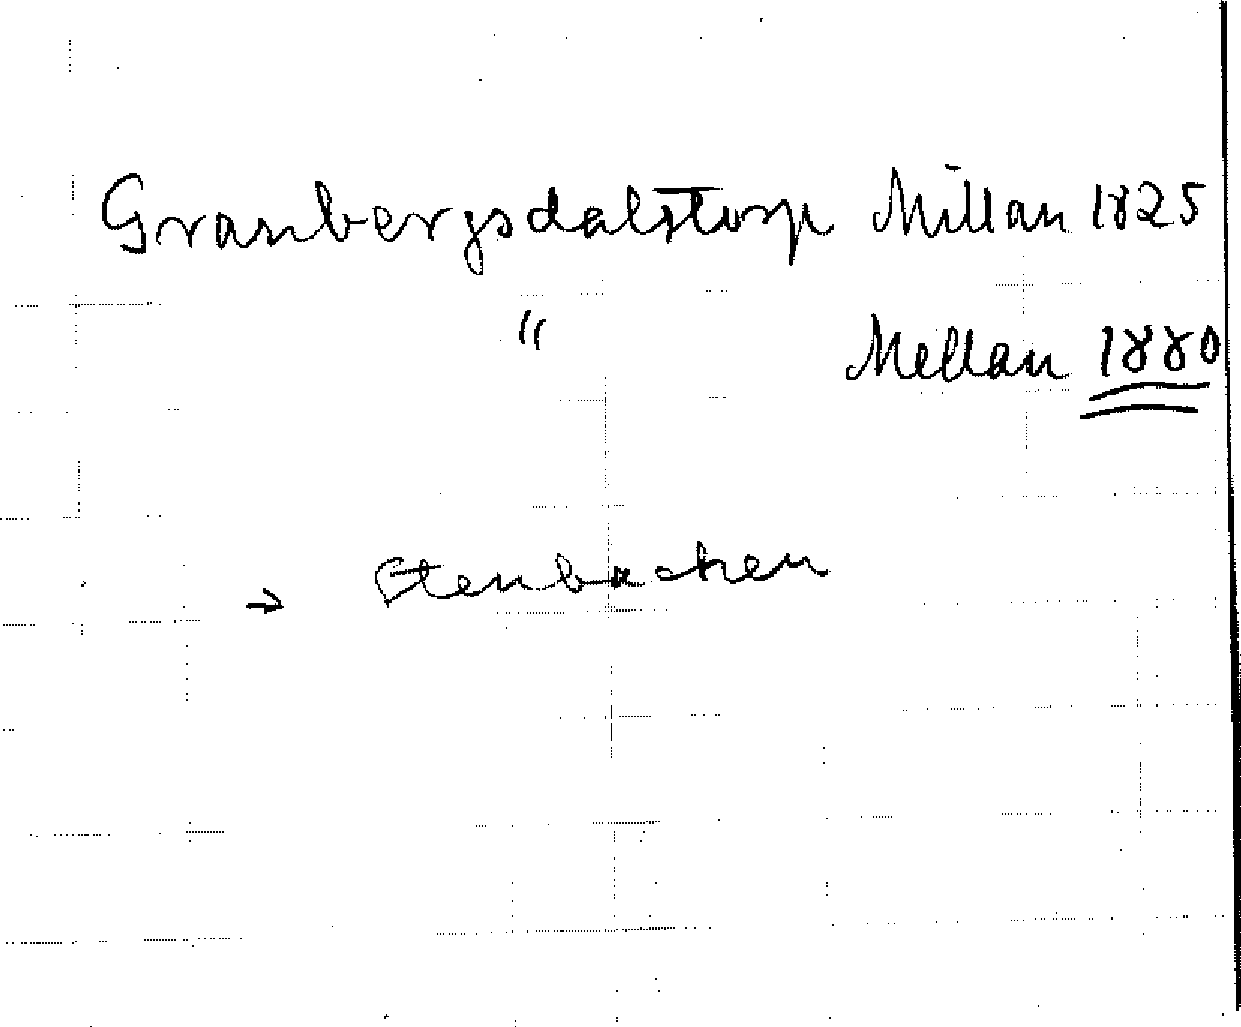 Granbergsdalstorp Mellan 1825
" Mellan 1880
→ Stenbacken